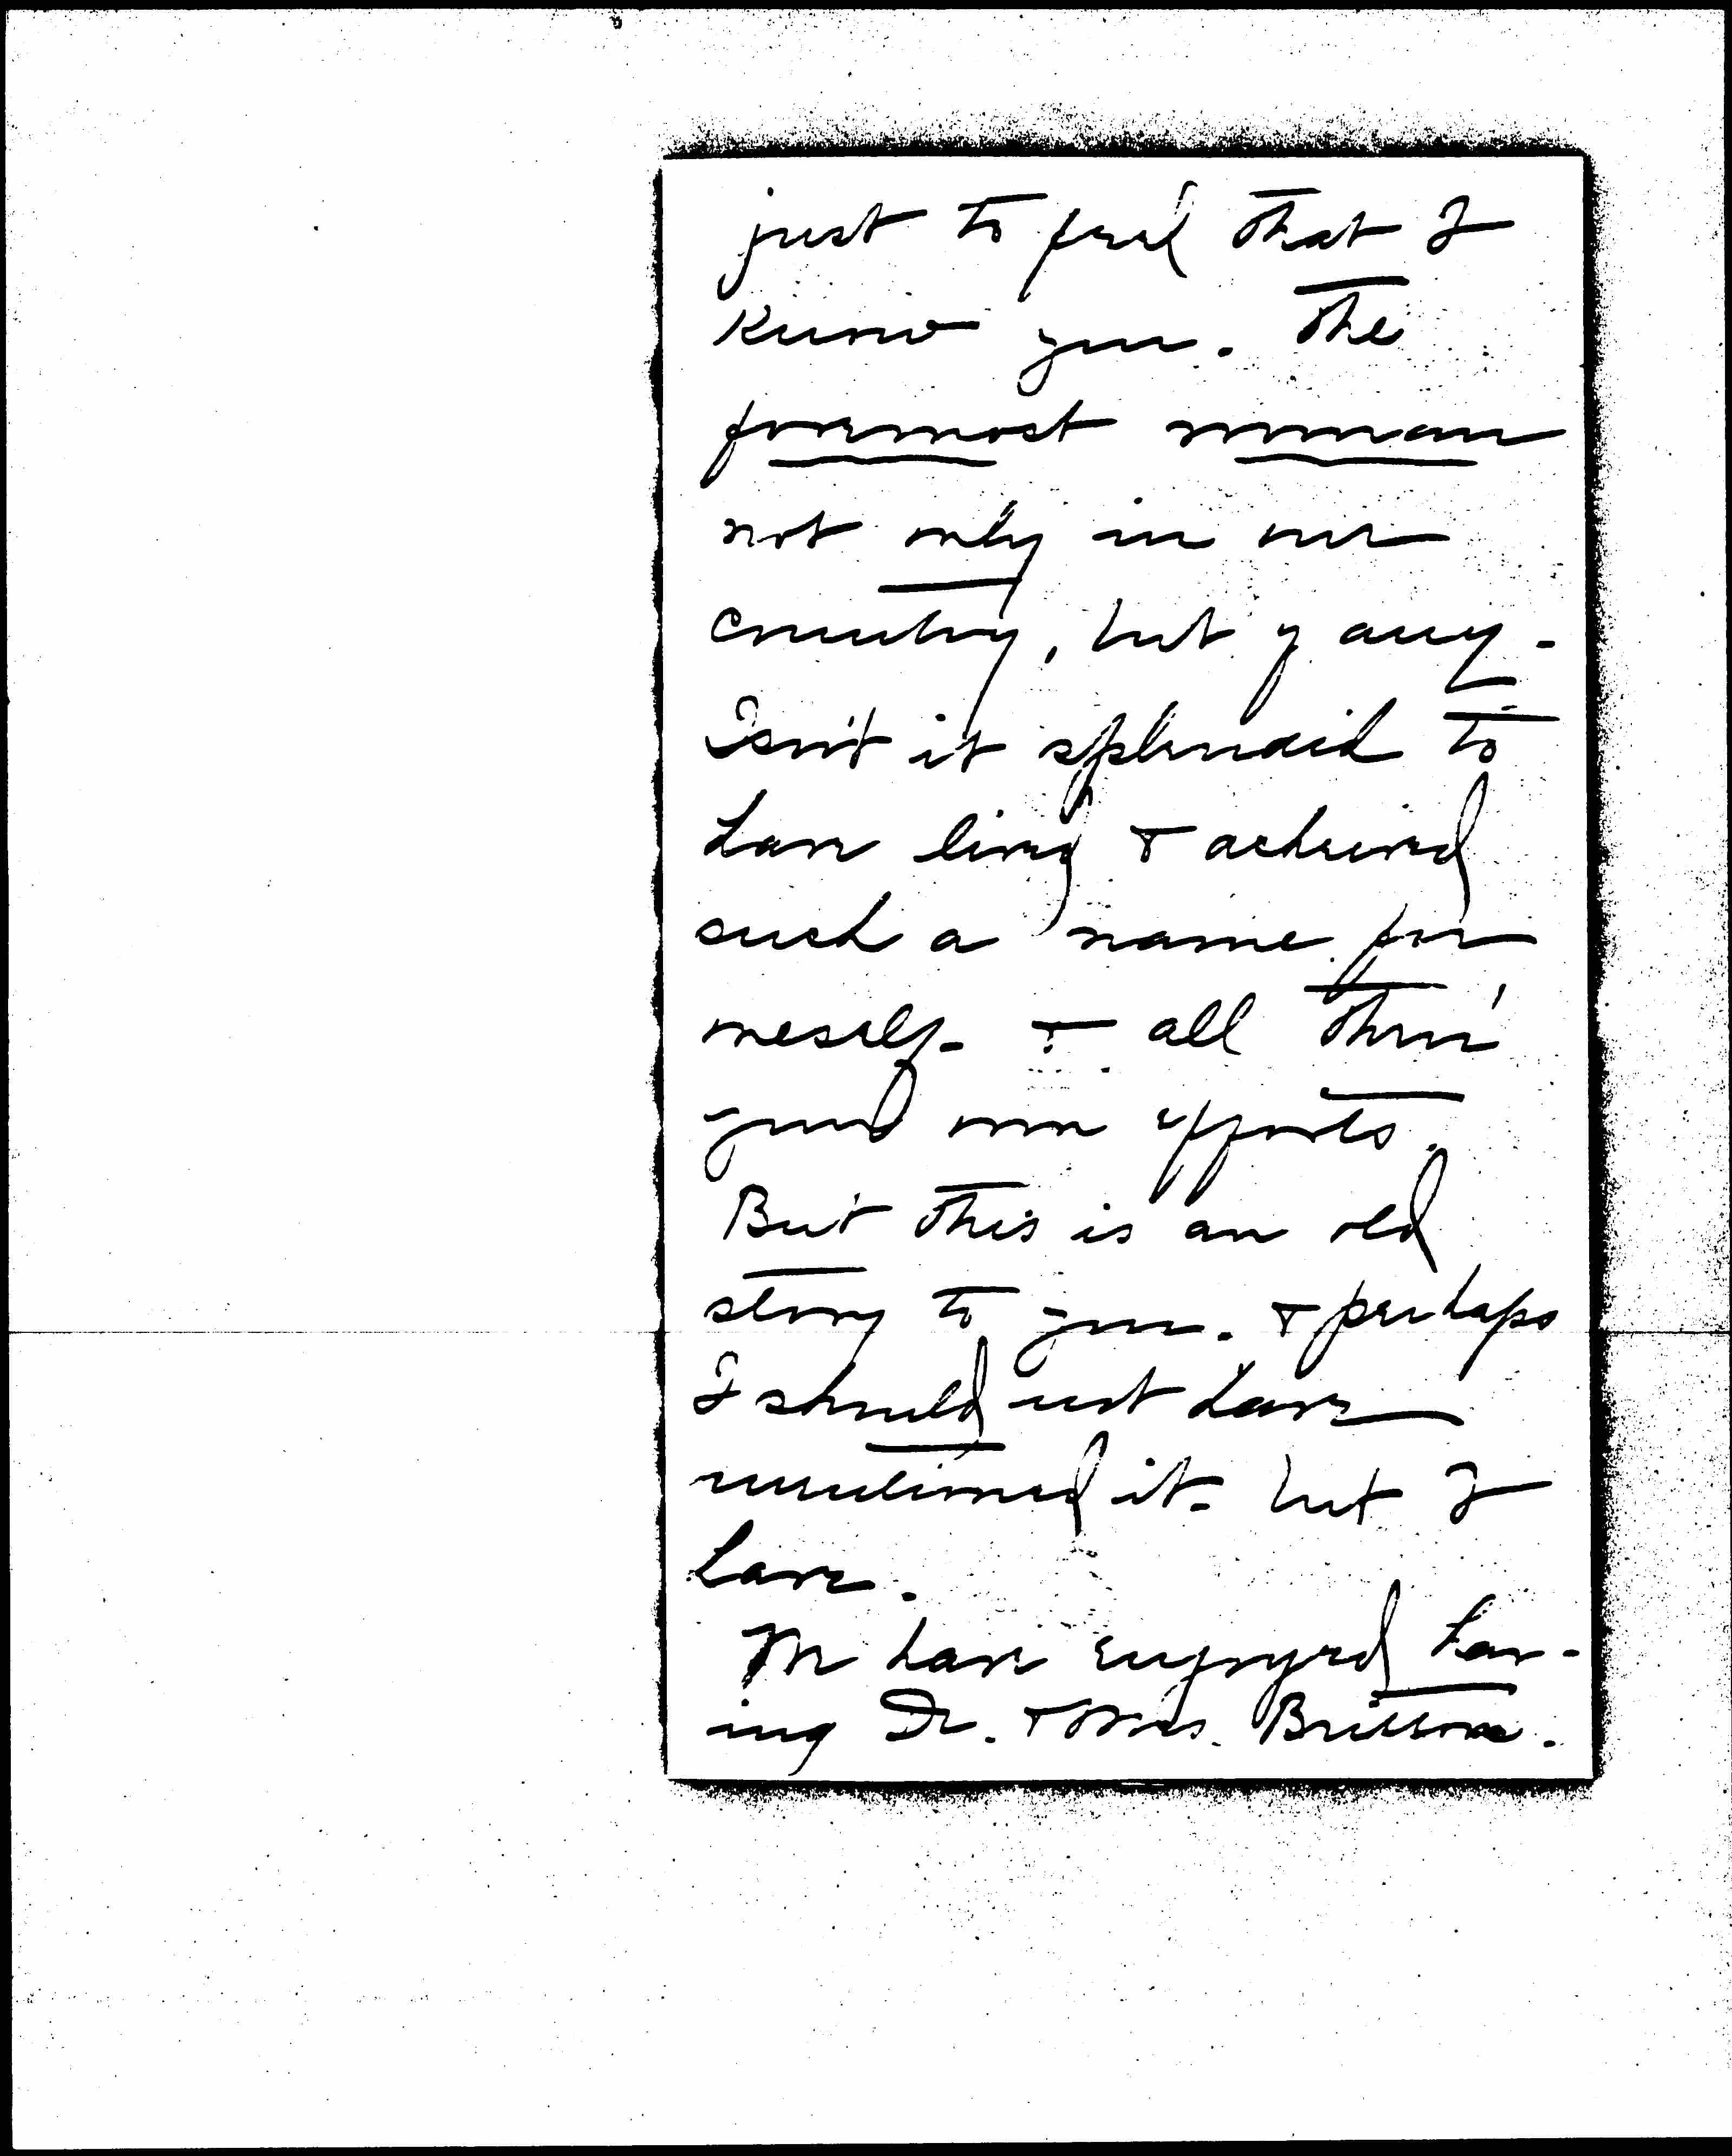 just to feel that I
know you. The
foremost woman
not only in our
country, but of any -
Isn't it splendid to
have lived & achieved
such a name for
oneself - & all thro'
good own efforts.
But this is an old
story to you. & perhaps
I should not have
mentioned it - but I
have.
We have enjoyed hav-
ing Dr. & Mrs. Britton.